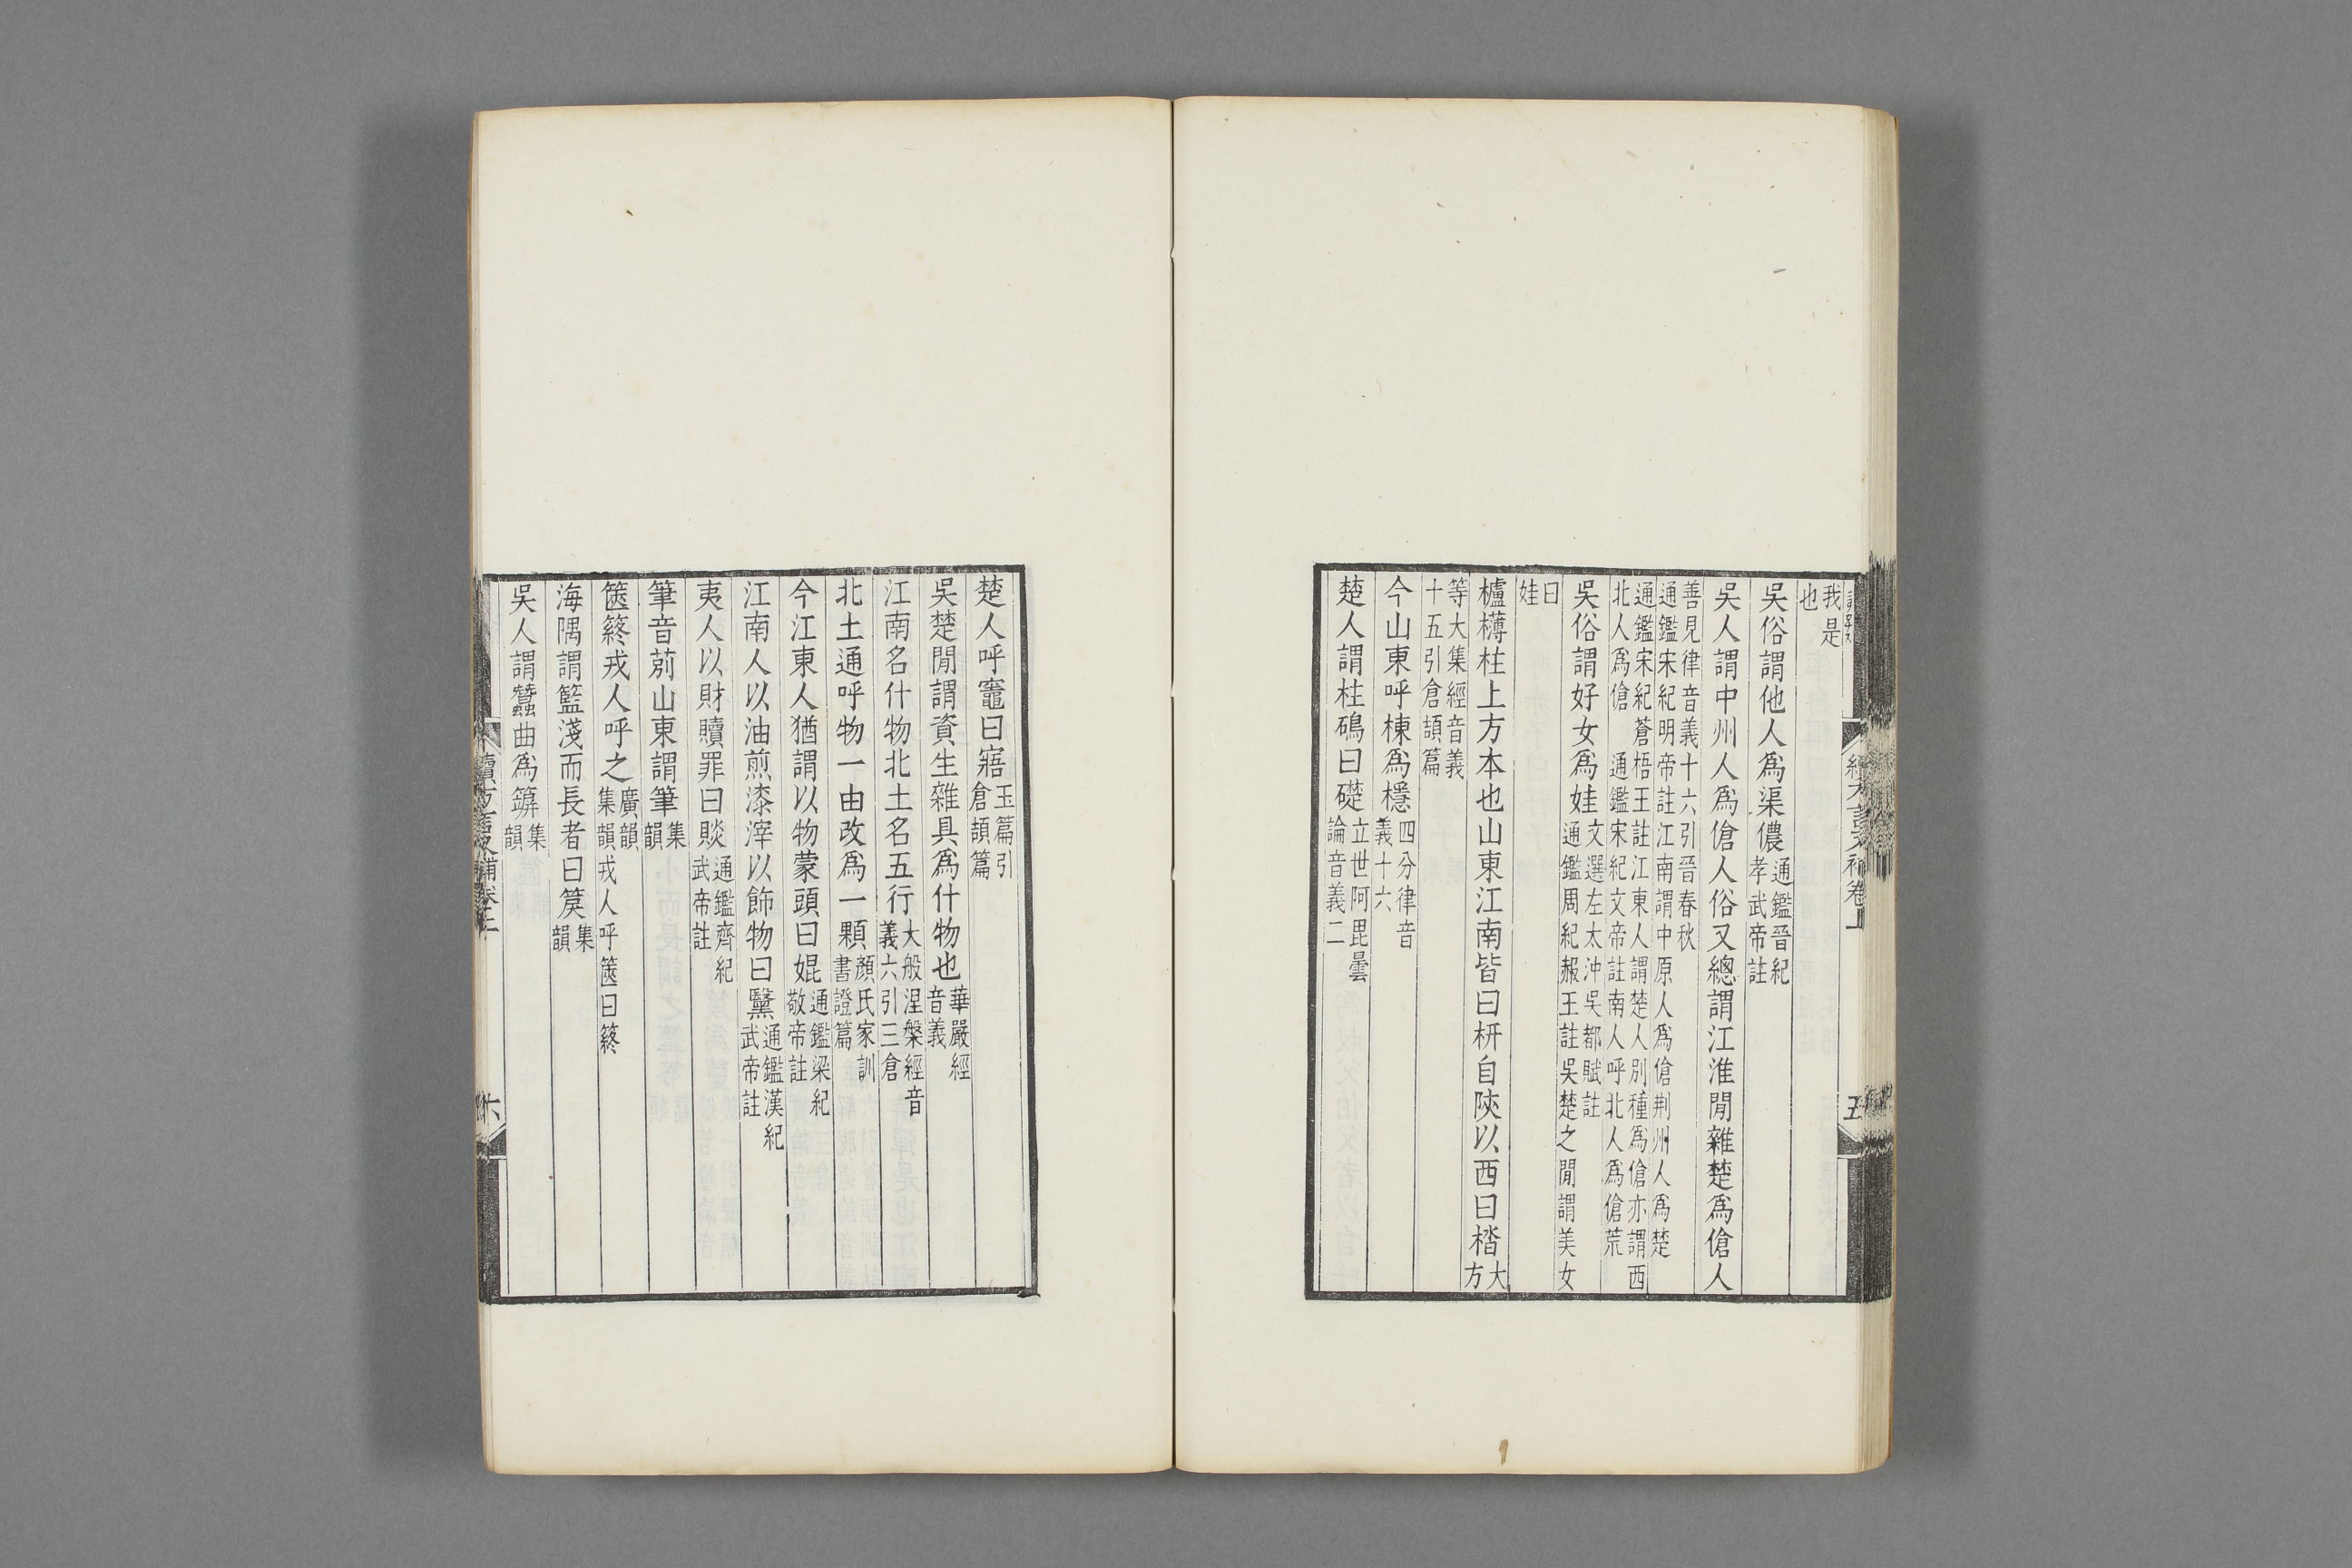 我是
也
吳俗謂他人爲渠儂通鑑晉紀
孝武帝註
吳人謂中州人爲傖人俗又總謂江淮閒雜楚爲傖人
善見律音義十六引晉春秋
通鑑宋紀明帝註江南謂中原人爲傖荆州人爲楚
通鑑宋紀蒼梧王註江東人謂楚人別種爲傖亦謂西
北人爲傖 通鑑宋紀文帝註南人呼北人爲傖荒
吳俗謂好女爲娃文選左太沖吳都賦註
通鑑周紀赧王註吳楚之閒謂美女
曰
娃
櫨欂柱上方本也山東江南皆曰枅自陝以西曰㭼大
方
等大集經音義
十五引倉頡篇
今山東呼棟爲檼四分律音
義十六
楚人謂柱碢曰礎立世阿毘曇
論音義二
續方言又補卷上
五
楚人呼竈曰寤玉篇引
倉頡篇
吳楚閒謂資生雜具爲什物也華嚴經
音義
江南名什物北土名五行大般涅槃經音
義六引三倉
北土通呼物一由改爲一顆顏氏家訓
書證篇
今江東人猶謂以物蒙頭曰䋯通鑑梁紀
敬帝註
江南人以油煎漆滓以飾物曰黱通鑑漢紀
武帝註
夷人以財贖罪曰賧通鑑齊紀
武帝註
筆音䓶山東謂筆集
韻
篋䈺戎人呼之廣韻
集韻戎人呼篋曰䈺
海隅謂籃淺而長者曰䈉集
韻
吳人謂蠶曲爲簈集
韻
續方言又補卷上
六